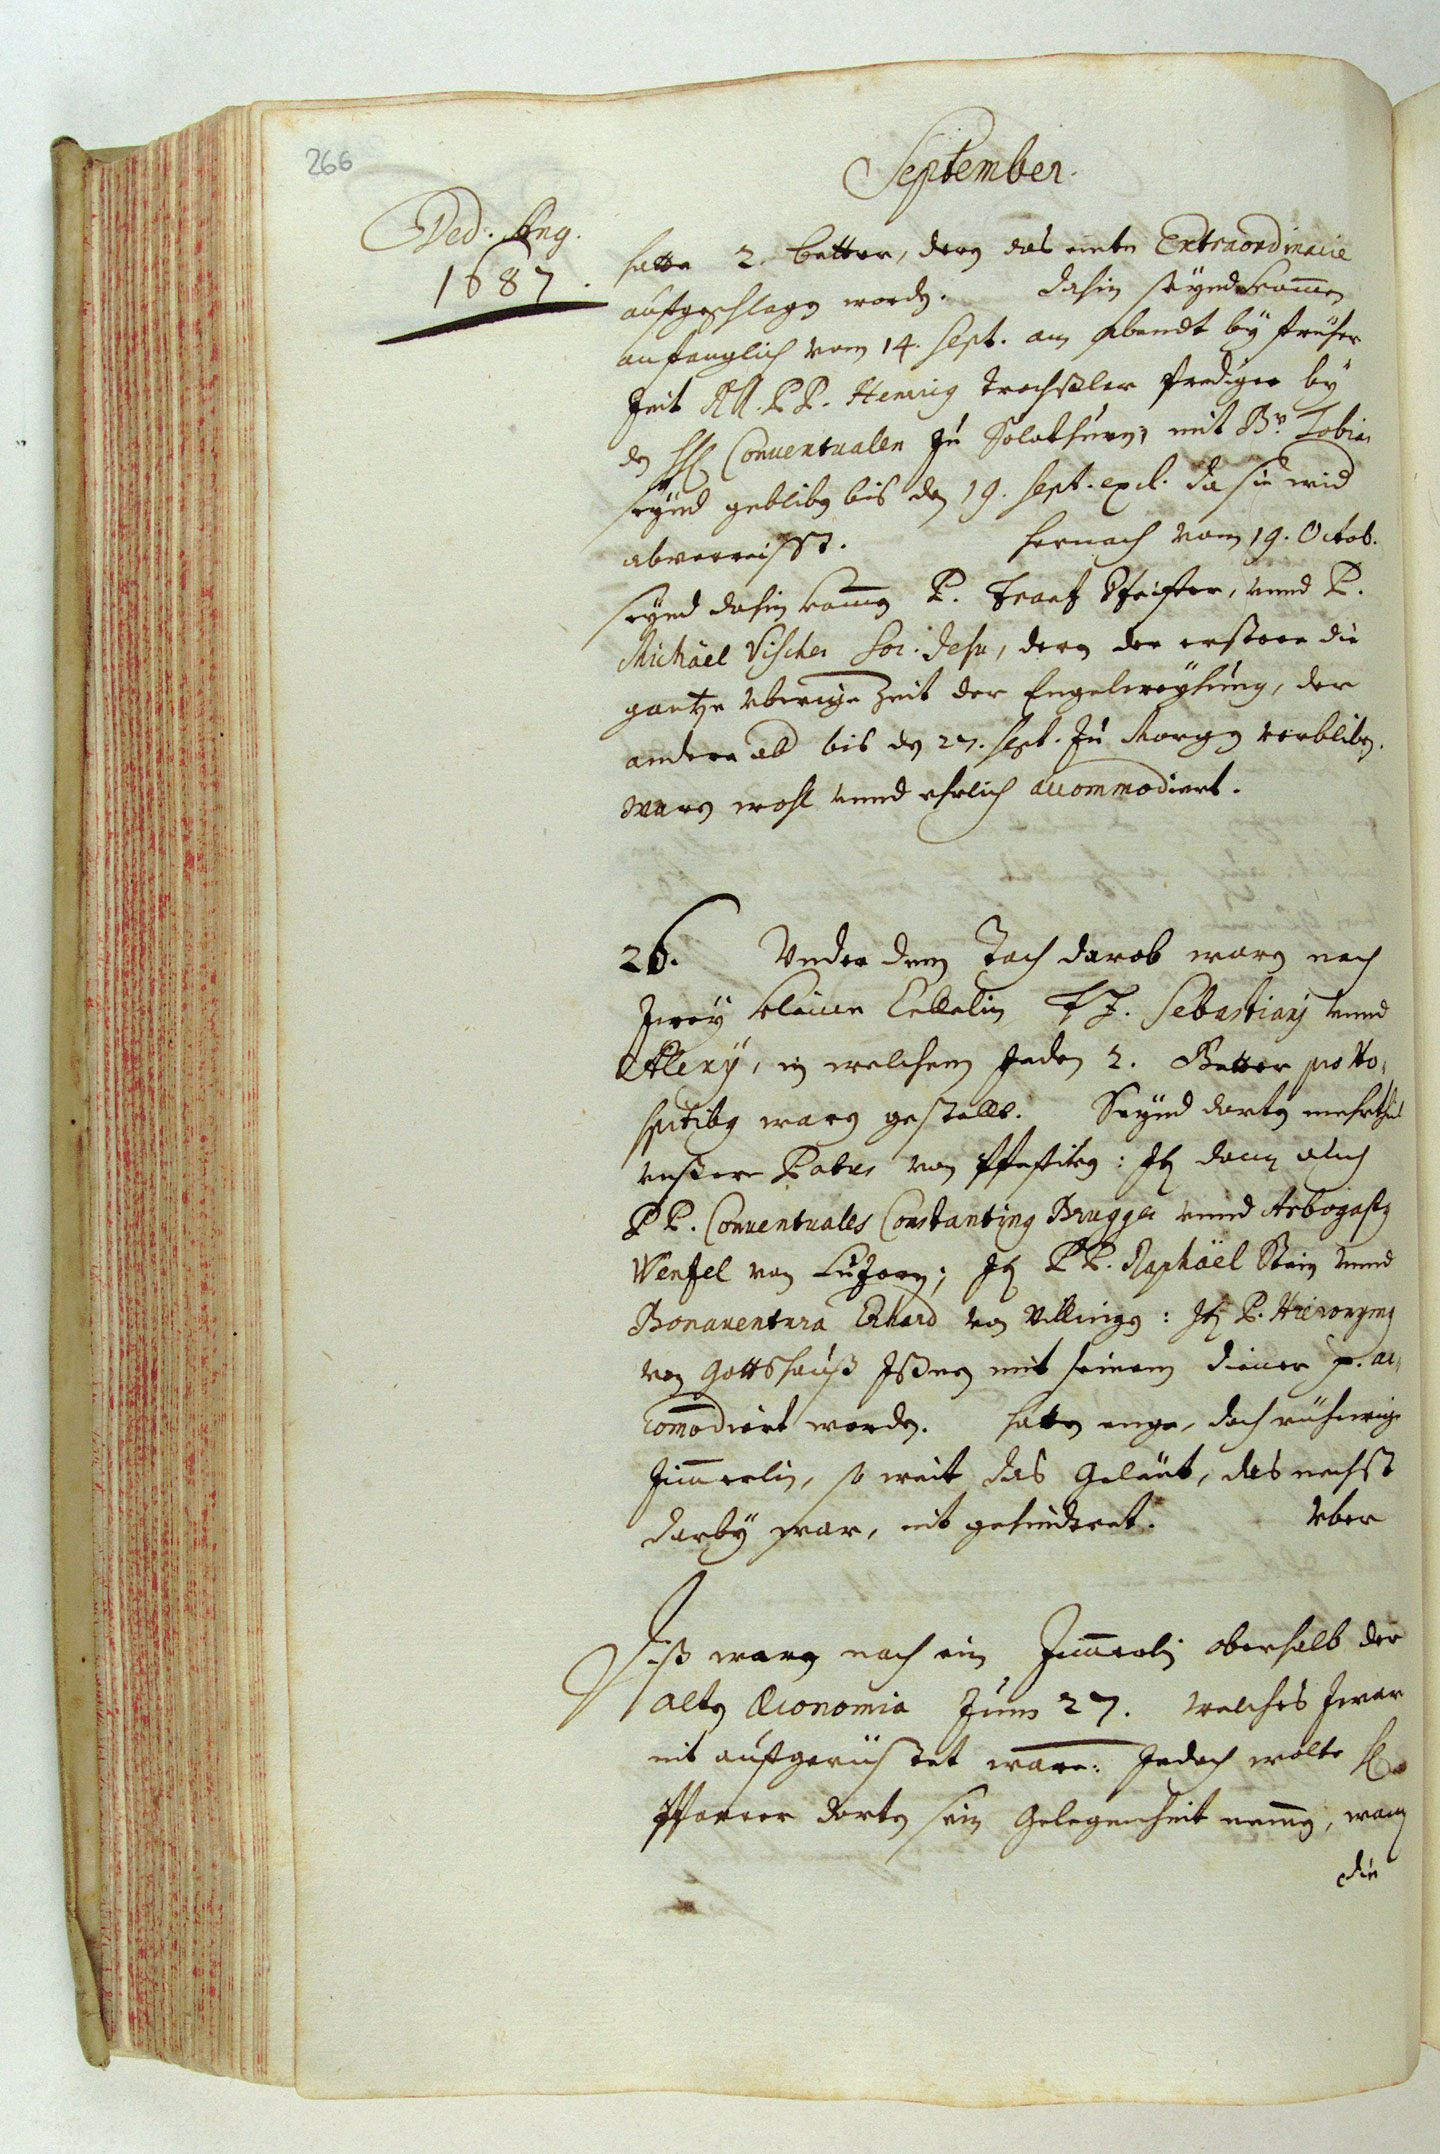 266
September.
Ded. Ang.
1687.
hatte 2. better, dern das einte Extraordinarie
auffgeschlagen worden. Dahin seynd kommen
anfanglich vom 14. Sept. am Abendt by früher
Zeit RR. PP. Henrig Trochsler Prediger by
den HH Conuentualen zu Solothurn, mit Br. Tobias
seynd gebliben bis den 19. Sept. excl. da sie wid
abverreisst. Hernach vom 19. Octob.
seynd dahin kommen P. Frantz Pfeiffer, vnnd P.
Michäel Vischer Soc. Jesu, dern der erstere die
gantze vberige Zeit der Engelweyhung, der
andere ab bis den 27. Sept. zu Morgen verbliben.
waren wohl vnnd ehrlich accommodiert.
26. Vnder dem Tach darob waren noch
zwey kleine Cellelin SS. Sebastianj vnnd
Alexij, in welchem jeden 2. Better pro Ho,
spitibg waren gestellt. Seynd dorten mehrtheils
vnßere Patres von Pfeffikhen: Jtem dann auch
PP. Conuentuales Constanting Brugger vnnd Arbogastg
Wenzel von Luzern; Jtem PP. Raphäel Stain vnnd
Bonauentura Erhard von Villingen: Jtem P. Hieronymg
von Gottshauß Jßnen mit seinem diener p. ac,
comodiert worden. hatten enge, doch rühwige
Zimmerlin, so weit das Geleüt, das nechst
darby war, nit gehinderet. Vber
Diß waren noch ein Zimmerlj oberhalb der
alten Œconomia zum 27. welches zwar
nit auffgerüstet ware: Jedoch wolte H
Pfarrer dorten sein Gelegenheit nemmen, wann
die